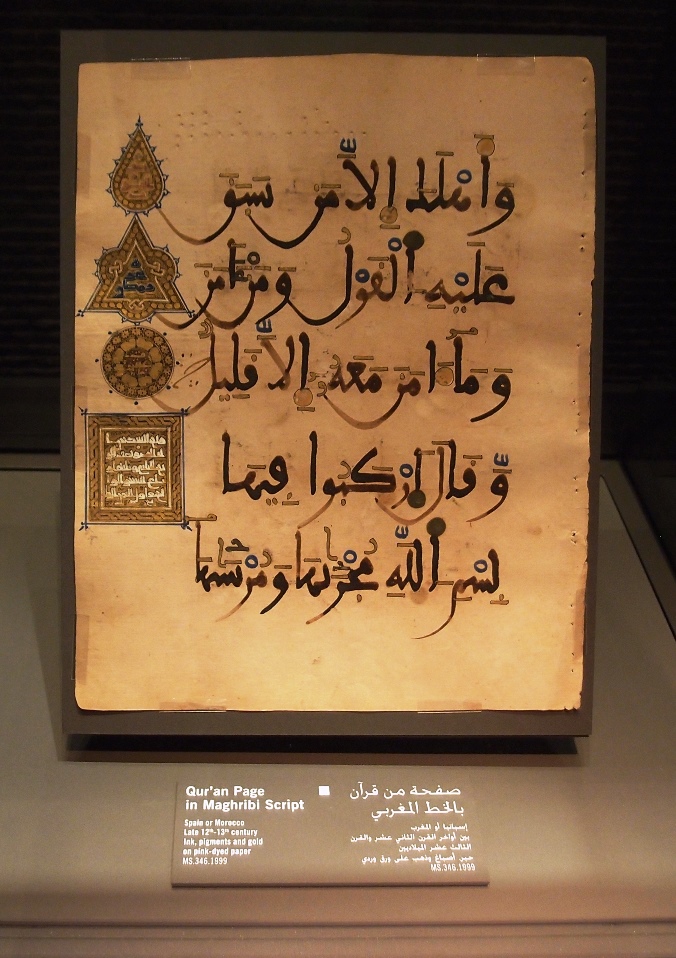 وَأَهْلَكَ إِلَّا مَن سَبَقَ
عَلَيْهِ الْقَوْلُ وَمَنْ ءَامَنَ
وَمَا ءَامَنَ مَعَهُ إِلَّا قَلِيلٌ
وَّقَالَ ارْكَبُوا فِيهَا
بِسْمِ اللَّهِ مُجْرَىٰهَا وَمُرْسَىٰهَا
Qur'an Page
in Maghribi Script
Spain or Morocco
Late 12th-13th century
Ink, pigments and gold
on pink-dyed paper
MS.346.1999
صفحة من قرآن
بالخط المغربي
إسبانيا أو المغرب
بين أواخر القرن الثاني عشر والقرن
الثالث عشر الميلاديين
حبر، أصباغ وذهب على ورق وردي
MS.346.1999